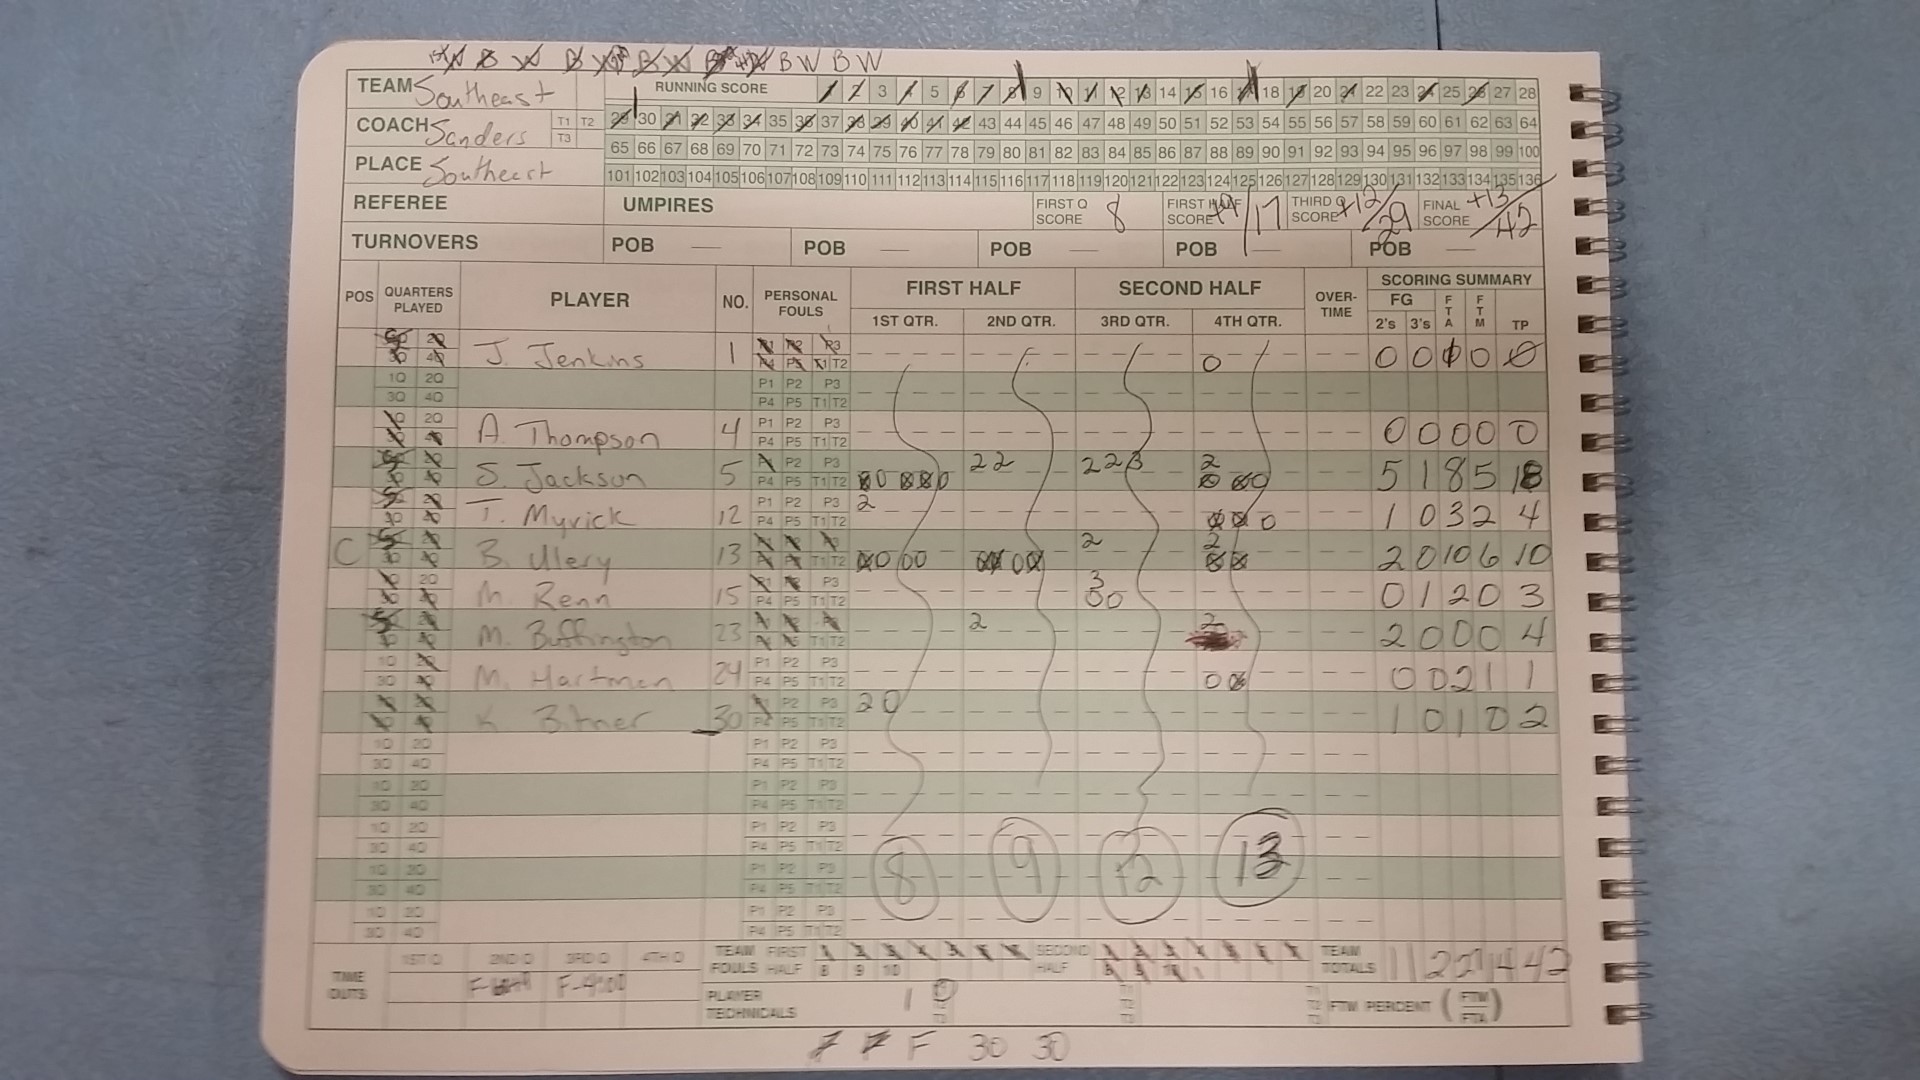 1st W B W B W B W B W B W B W
TEAM Southeast RUNNING SCORE 1 2 3 4 5 6 7 8 9 10 11 12 13 14 15 16 17 18 19 20 21 22 23 24 25 26 27 28
COACH Sanders T1 T2 T3 29 30 31 32 33 34 35 36 37 38 39 40 41 42 43 44 45 46 47 48 49 50 51 52 53 54 55 56 57 58 59 60 61 62 63 64
PLACE Southeast 65 66 67 68 69 70 71 72 73 74 75 76 77 78 79 80 81 82 83 84 85 86 87 88 89 90 91 92 93 94 95 96 97 98 99 100
101 102 103 104 105 106 107 108 109 110 111 112 113 114 115 116 117 118 119 120 121 122 123 124 125 126 127 128 129 130 131 132 133 134 135 136
REFEREE UMPIRES FIRST Q SCORE 8 FIRST HALF SCORE +9/17 THIRD Q SCORE +12/29 FINAL SCORE +13/42
TURNOVERS POB — POB — POB — POB — POB —
POS QUARTERS PLAYED PLAYER NO. PERSONAL FOULS FIRST HALF SECOND HALF OVER-TIME SCORING SUMMARY
1ST QTR. 2ND QTR. 3RD QTR. 4TH QTR. FG 2's 3's FTA FTM TP
J. Jenkins 1 P1 P2 P3 P4 P5 T1 T2 0 0 0 0 0 0
1Q 2Q 3Q 4Q P1 P2 P3 P4 P5 T1 T2
A. Thompson 4 P1 P2 P3 P4 P5 T1 T2 0 0 0 0 0
S. Jackson 5 P1 P2 P3 P4 P5 T1 T2 22 223 2 5 1 8 5 18
T. Myrick 12 P1 P2 P3 P4 P5 T1 T2 2 1 0 3 2 4
C B. Ulery 13 P1 P2 P3 P4 P5 T1 T2 2 2 2 0 10 6 10
M. Renn 15 P1 P2 P3 P4 P5 T1 T2 3 00 0 1 2 0 3
M. Buffington 23 P1 P2 P3 P4 P5 T1 T2 2 2 2 0 0 0 4
M. Hartman 24 P1 P2 P3 P4 P5 T1 T2 00 0 0 2 1 1
K. Bitner 30 P1 P2 P3 P4 P5 T1 T2 20 1 0 1 0 2
1Q 2Q 3Q 4Q P1 P2 P3 P4 P5 T1 T2
1Q 2Q 3Q 4Q P1 P2 P3 P4 P5 T1 T2
1Q 2Q 3Q 4Q P1 P2 P3 P4 P5 T1 T2
1Q 2Q 3Q 4Q P1 P2 P3 P4 P5 T1 T2
1Q 2Q 3Q 4Q P1 P2 P3 P4 P5 T1 T2
8 9 12 13
TIME OUTS 1ST Q 2ND Q 3RD Q 4TH Q TEAM FOULS FIRST HALF 1 2 3 4 5 6 7 8 9 10 SECOND HALF 1 2 3 4 5 6 7 8 9 10 TEAM TOTALS 11 2 27 14 42
PLAYER TECHNICALS 1 T1 T2 T3 T1 T2 T3 FTM PERCENT (FTM/FTA)
F F F 30 30